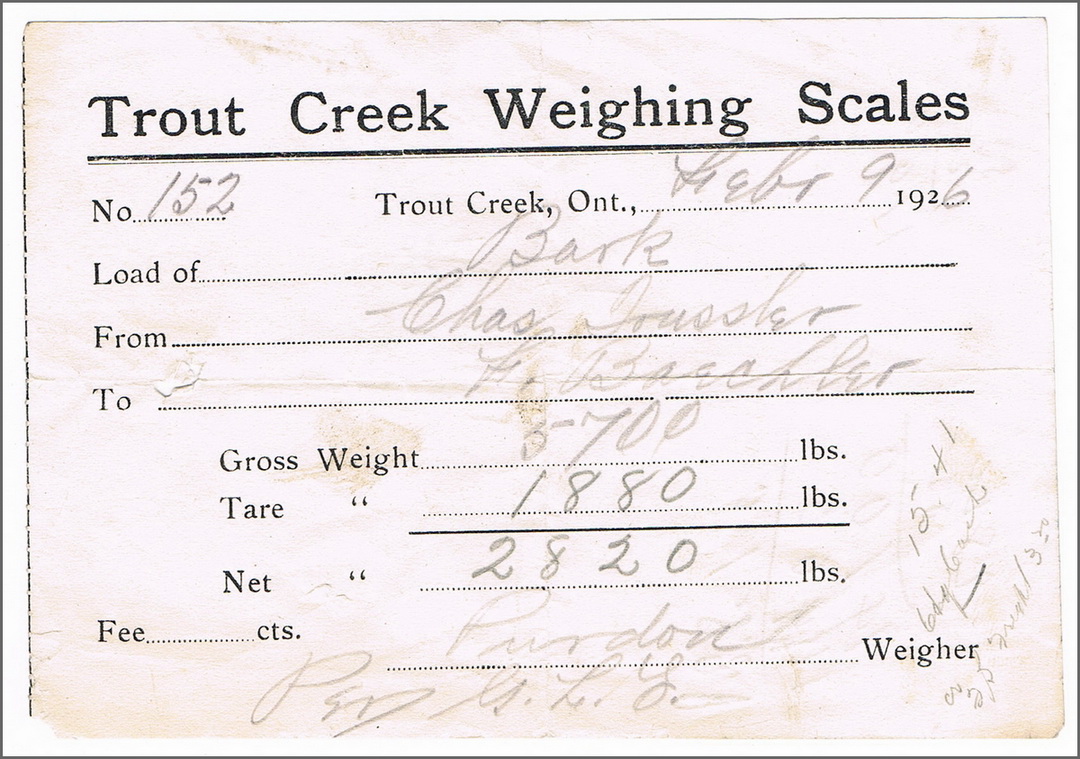 Trout Creek Weighing Scales
No. 152 Trout Creek, Ont., Feb 9 1926
Load of Bark
From Chas
To F. Baechler
Gross Weight 5700 lbs.
Tare “ 1880 lbs.
Net “ 2820 lbs.
Fee cts.
Purdon Weigher
Per G. L. E.
15 41